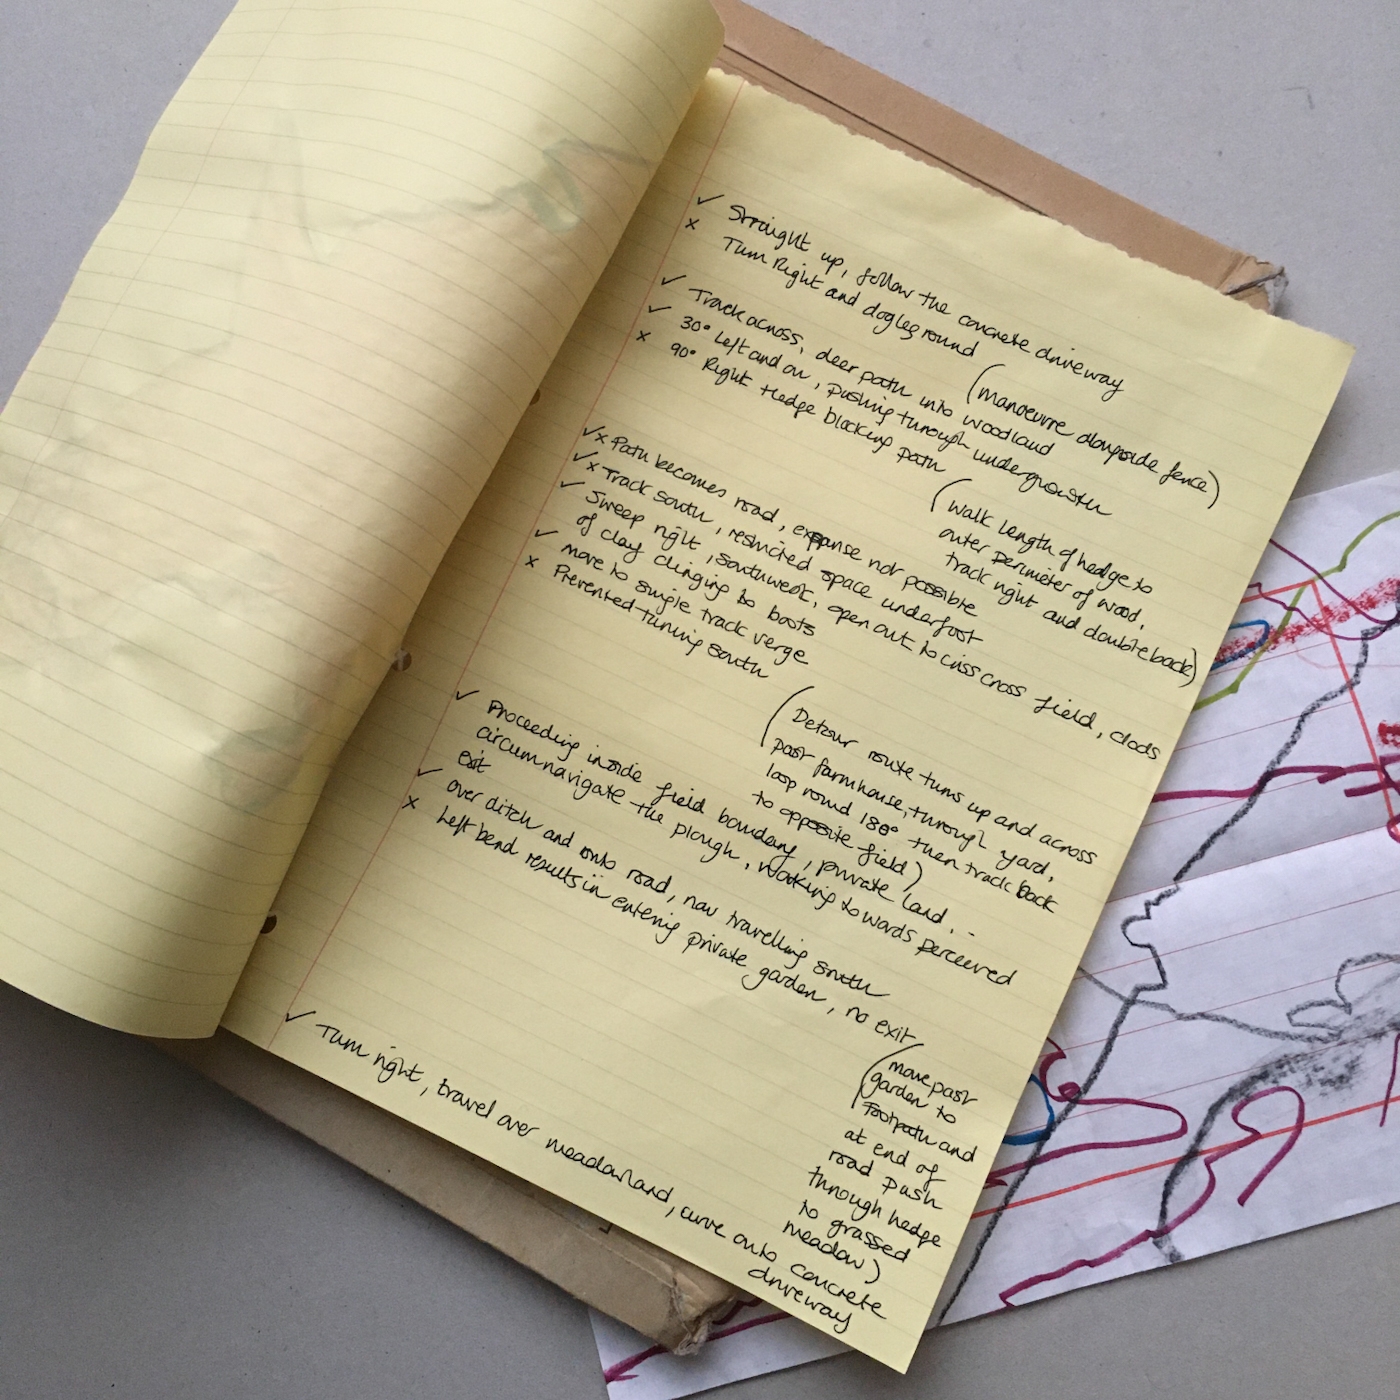 ✓ Straight up, follow the concrete driveway
x Turn Right and dogleg round
(manoeuvre alongside fence)
✓ Track across, deer path into woodland
✓ 30° Left and on, pushing through undergrowth
x 90° Right Hedge blocking path
(walk length of hedge to
outer perimeter of wood,
track right and double back)
✓x Path becomes road, expanse not possible
✓x Track south, restricted space underfoot
✓ Sweep right, southwest, open out to criss cross field, clods
of clay clinging to boots
✓ move to single track verge
x Prevented turning south
(Detour route turns up and across
past farmhouse, through yard,
loop round 180° then track back
to opposite field)
✓ Proceeding inside field boundary, private land,
circumnavigate the plough, working towards perceived
exit
✓ over ditch and onto road, now travelling south
x Left bend results in entering private garden, no exit
(move past
garden to
footpath and
at end of
road push
through hedge
to grassed
meadow)
✓ Turn right, travel over meadowland, curve onto concrete
driveway